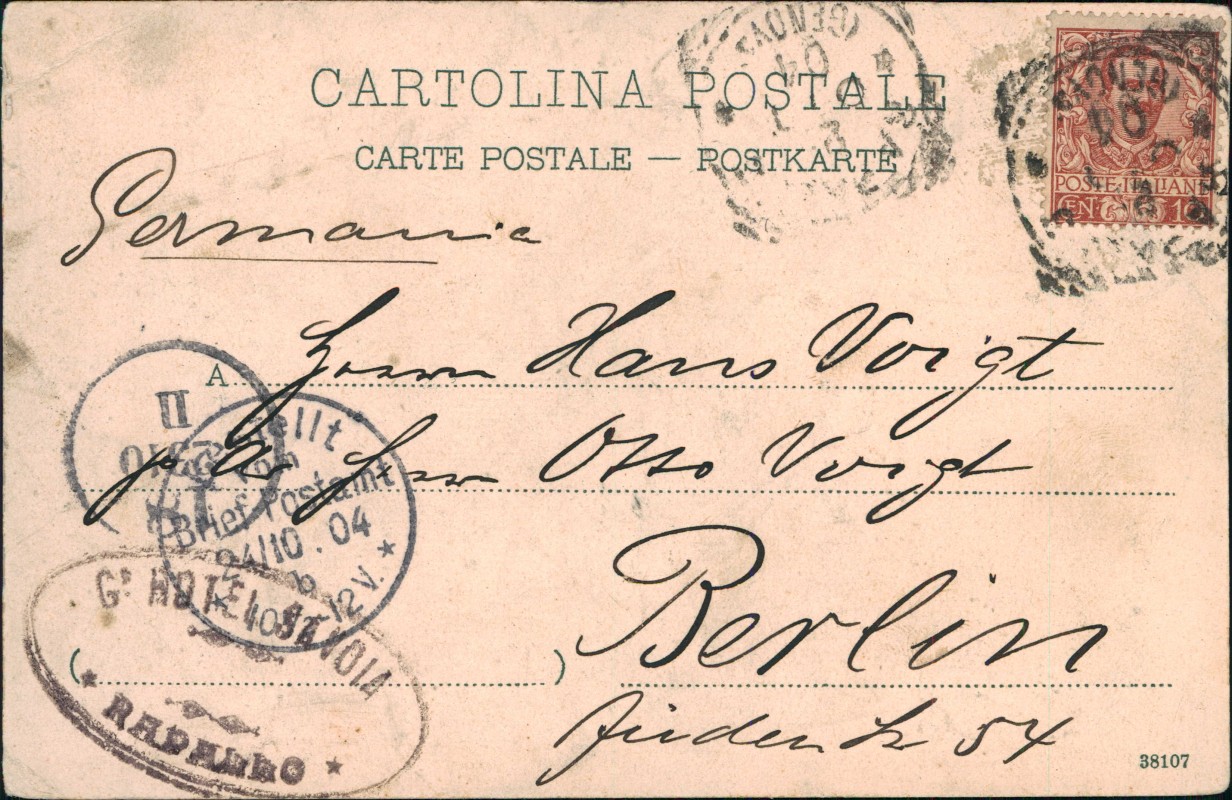 CARTOLINA POSTALE
CARTE POSTALE — POSTKARTE
(GENOVA)
04
(GENOVA)
04
POSTE·ITALIANE
CEN 10
Germania
A Herrn Hans Voigt
p. a. Herr Otto Voigt
Berlin
Jüdenstr 54
II
ellt
vom
Brief-Postamt
24/10.04
8
12 V.
Gd HOTEL SAVOIA
RAPALLO
( )
38107